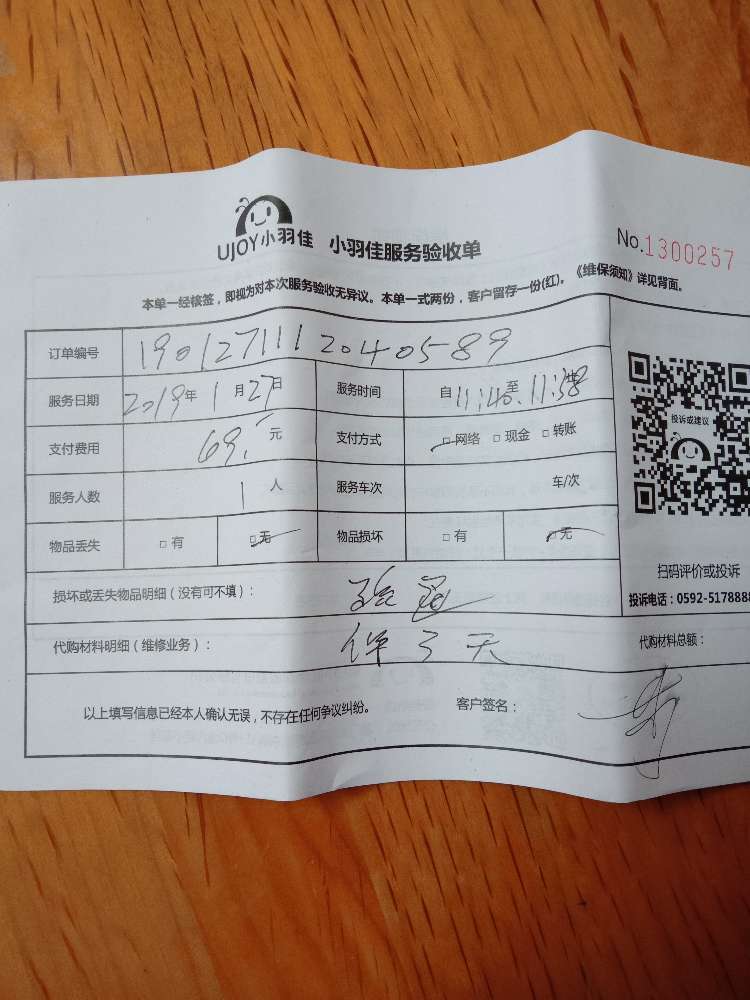 UJOY小羽佳 小羽佳服务验收单 No.1300257
本单一经核签，即视为对本次服务验收无异议。本单一式两份，客户留存一份(红)。《维保须知》详见背面。
订单编号 1901271112040589
服务日期 2019年1月27日 服务时间 自11:40至11:58
支付费用 69.元 支付方式 □网络 □现金 □转账
服务人数 1人 服务车次 车/次
物品丢失 □有 □无 物品损坏 □有 □无
投诉或建议
扫码评价或投诉
投诉电话：0592-5178888
损坏或丢失物品明细（没有可不填）：
代购材料明细（维修业务）： 保了天 代购材料总额：
以上填写信息已经本人确认无误，不存在任何争议纠纷。 客户签名：